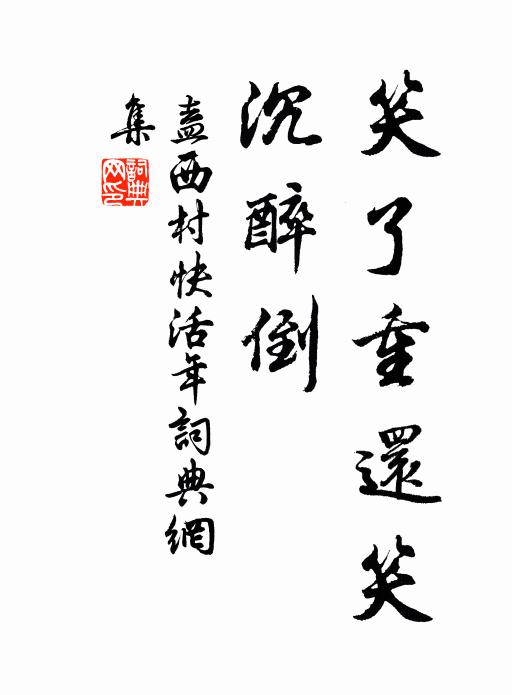 笑了重還笑
沉醉倒
盍西村快活年詞典網
集
詞典網印